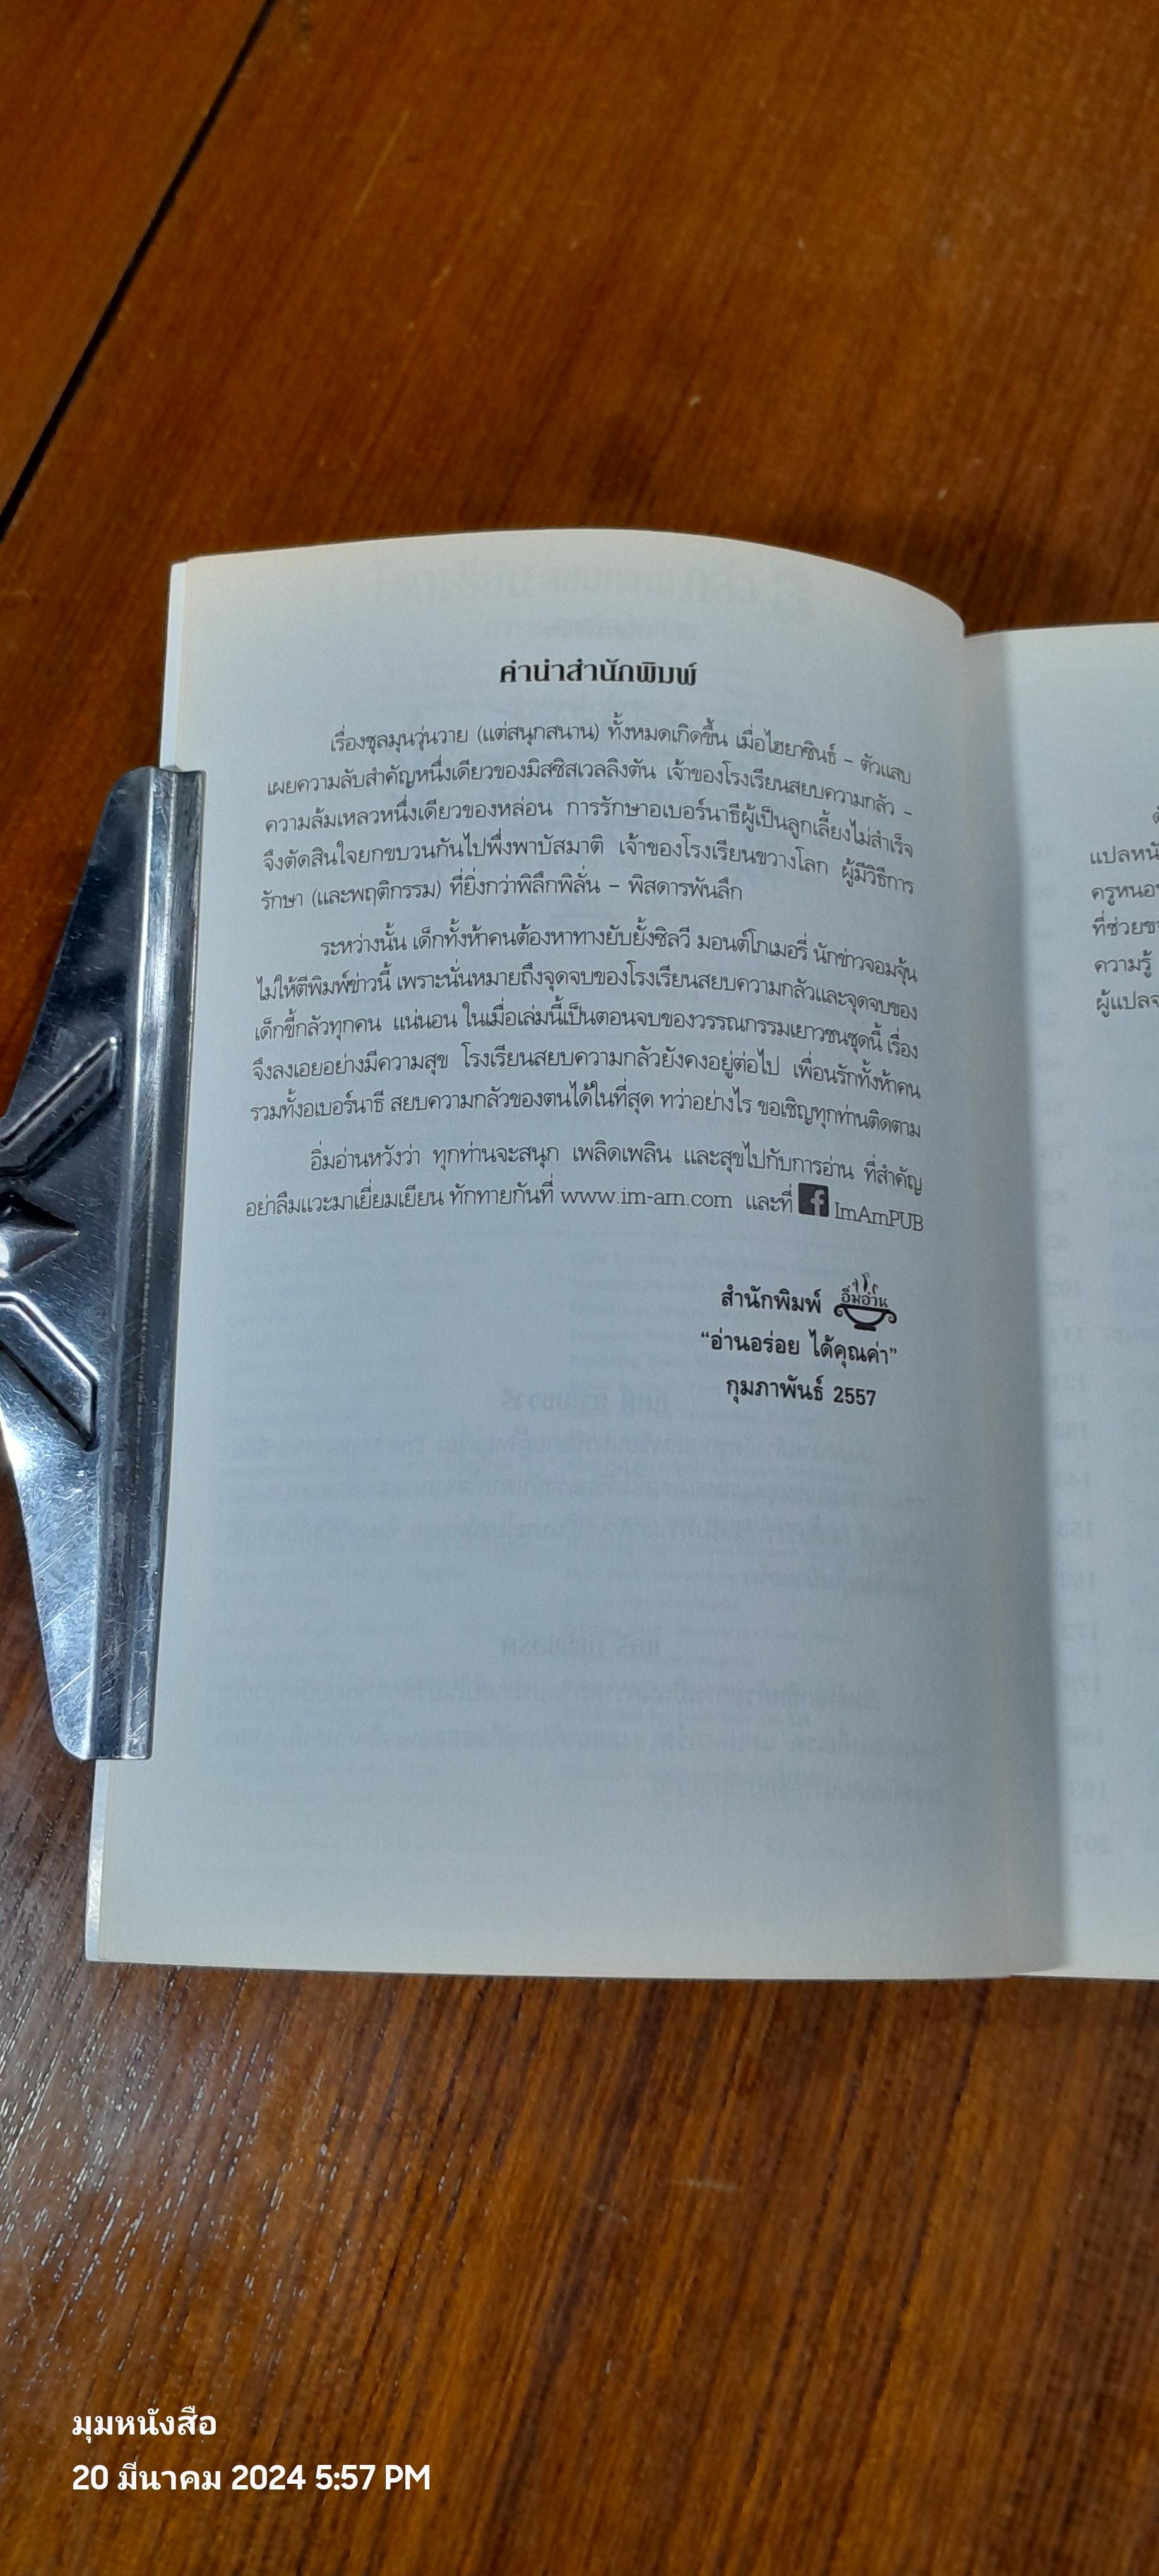 คำนำสำนักพิมพ์
เรื่องชุลมุนวุ่นวาย (แต่สนุกสนาน) ทั้งหมดเกิดขึ้น เมื่อไฮยาซินธ์ – ตัวแสบ
เผยความลับสำคัญหนึ่งเดียวของมิสซิสเวลลิงตัน เจ้าของโรงเรียนสยบความกลัว –
ความล้มเหลวหนึ่งเดียวของหล่อน การรักษาอเบอร์นาธีผู้เป็นลูกเลี้ยงไม่สำเร็จ
จึงตัดสินใจยกขบวนกันไปพึ่งพาบัสมาติ เจ้าของโรงเรียนขวางโลก ผู้มีวิธีการ
รักษา (และพฤติกรรม) ที่ยิ่งกว่าพิลึกพิลั่น – พิสดารพันลึก
ระหว่างนั้น เด็กทั้งห้าคนต้องหาทางยับยั้งซิลวี มอนต์โกเมอรี่ นักข่าวจอมจุ้น
ไม่ให้ตีพิมพ์ข่าวนี้ เพราะนั่นหมายถึงจุดจบของโรงเรียนสยบความกลัวและจุดจบของ
เด็กขี้กลัวทุกคน แน่นอน ในเมื่อเล่มนี้เป็นตอนจบของวรรณกรรมเยาวชนชุดนี้ เรื่อง
จึงลงเอยอย่างมีความสุข โรงเรียนสยบความกลัวยังคงอยู่ต่อไป เพื่อนรักทั้งห้าคน
รวมทั้งอเบอร์นาธี สยบความกลัวของตนได้ในที่สุด ทว่าอย่างไร ขอเชิญทุกท่านติดตาม
อิ่มอ่านหวังว่า ทุกท่านจะสนุก เพลิดเพลิน และสุขไปกับการอ่าน ที่สำคัญ
อย่าลืมแวะมาเยี่ยมเยียน ทักทายกันที่ www.im-arn.com และที่ f ImArnPUB
สำนักพิมพ์ อิ่มอ่าน
“อ่านอร่อย ได้คุณค่า”
กุมภาพันธ์ 2557
แปลหนั
ครูหนอ
ที่ช่วยข
ความรู้
ผู้แปลจ
มุมหนังสือ
20 มีนาคม 2024 5:57 PM